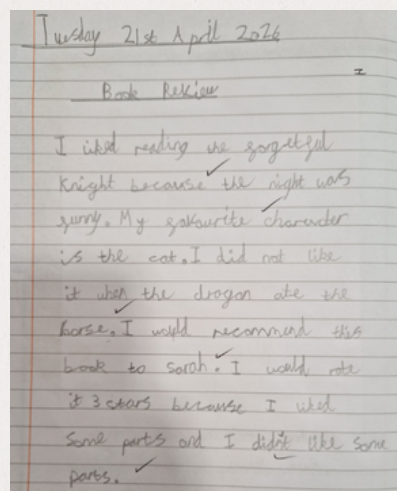 Tuesday 21st April 2026
I
Book Review
I liked reading the forgetful
Knight because the night was
funny. My favourite character
is the cat. I did not like
it when the dragon ate the
horse. I would recommend this
book to sarah. I would rate
it 3 stars because I liked
some parts and I didn't like some
parts.